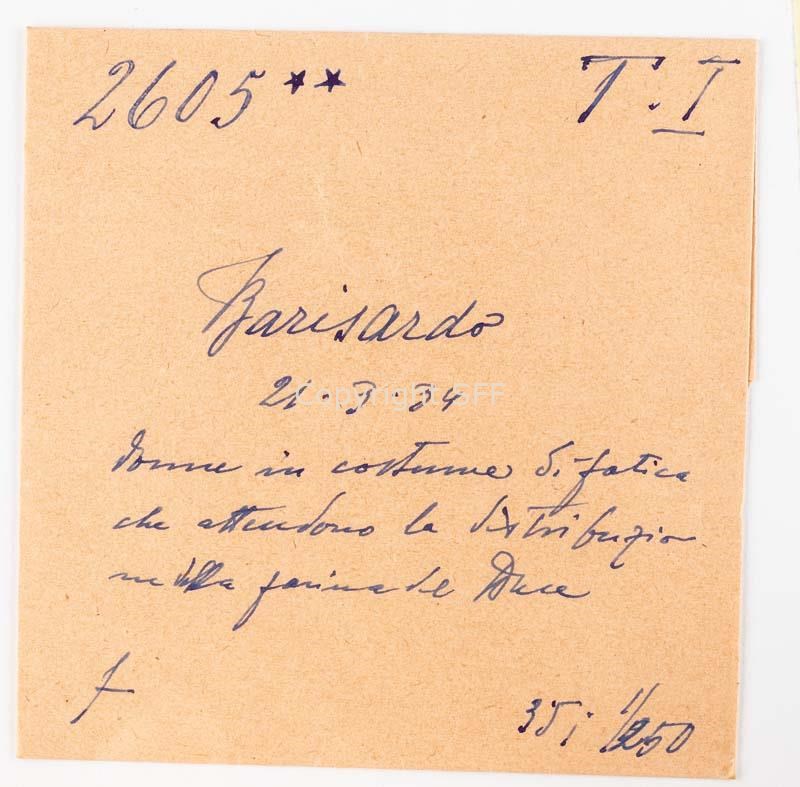 2605** T.I
Barisardo
21-3-34
Copyright ISFF
donne in costume di fatica
che attendono la distribuzio
ne della farina del Duce
f
35; 1/250